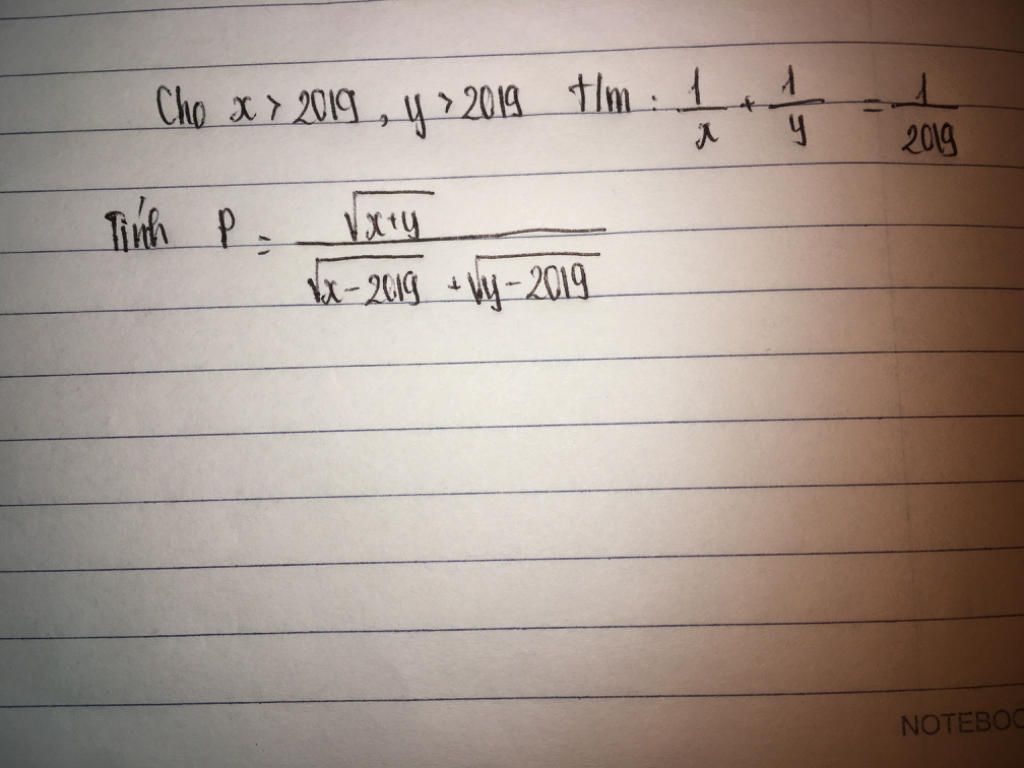 Cho x > 2019, y > 2019 t/m: 1/x + 1/y = 1/2019
Tính P = √(x+y) / (√(x-2019) + √(y-2019))
NOTEBOO